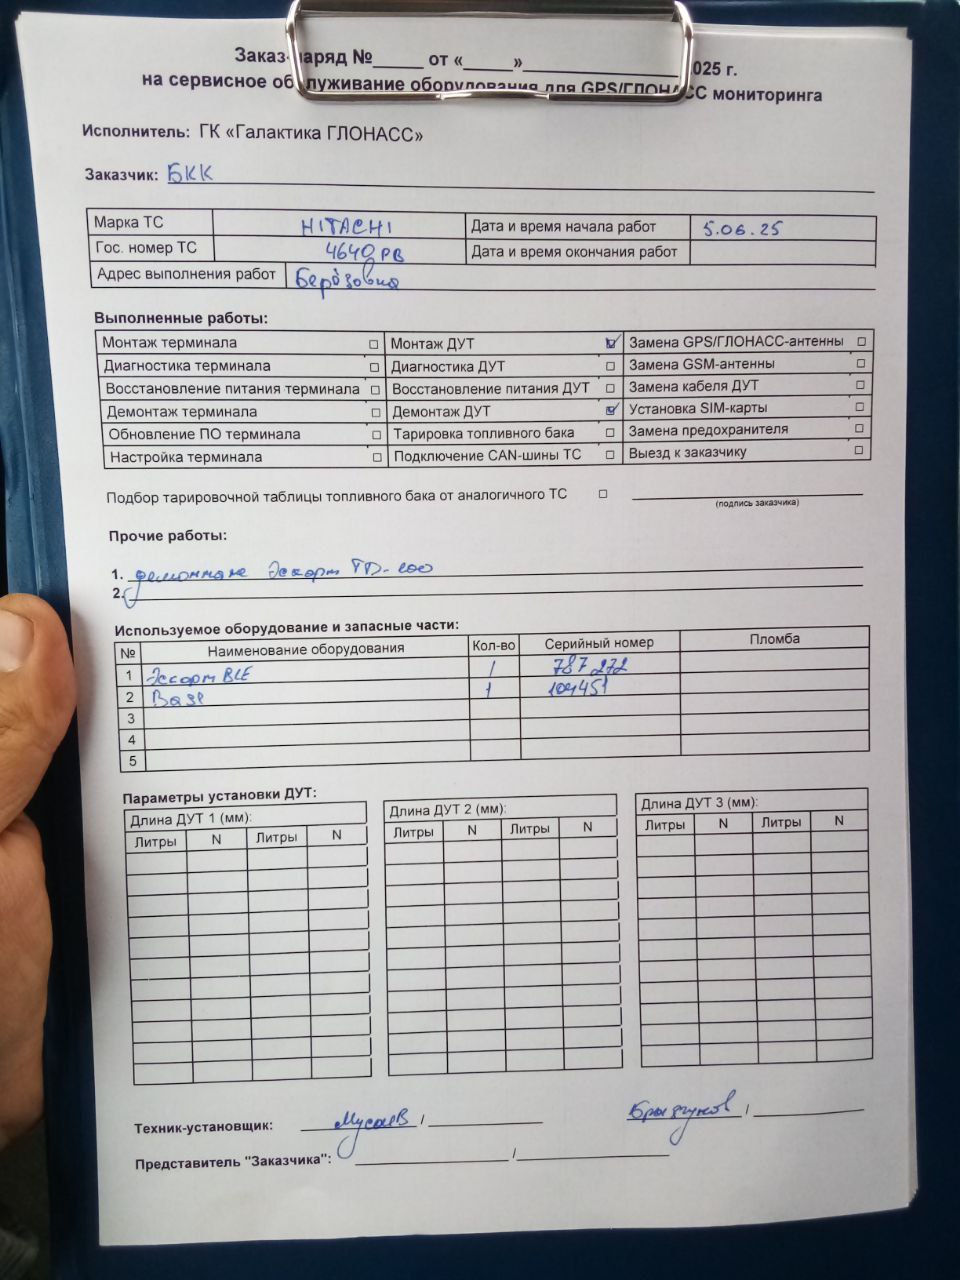 Заказ-наряд №_____ от «_____»________________2025 г.
на сервисное обслуживание оборудования для GPS/ГЛОНАСС мониторинга
Исполнитель: ГК «Галактика ГЛОНАСС»
Заказчик: БКК
Марка ТС HITACHI Дата и время начала работ 5.06.25
Гос. номер ТС 4640РВ Дата и время окончания работ
Адрес выполнения работ Берёзовка
Выполненные работы:
Монтаж терминала ☐ Монтаж ДУТ ☑ Замена GPS/ГЛОНАСС-антенны ☐
Диагностика терминала ☐ Диагностика ДУТ ☐ Замена GSM-антенны ☐
Восстановление питания терминала ☐ Восстановление питания ДУТ ☐ Замена кабеля ДУТ ☐
Демонтаж терминала ☐ Демонтаж ДУТ ☑ Установка SIM-карты ☐
Обновление ПО терминала ☐ Тарировка топливного бака ☐ Замена предохранителя ☐
Настройка терминала ☐ Подключение CAN-шины ТС ☐ Выезд к заказчику ☐
Подбор тарировочной таблицы топливного бака от аналогичного ТС ☐
(подпись заказчика)
Прочие работы:
1. демонтаж Эскорт ТD-
2.
Используемое оборудование и запасные части:
№ Наименование оборудования Кол-во Серийный номер Пломба
1 Эскорт BLE 1 787272
2 База 1 104451
3
4
5
Параметры установки ДУТ:
Длина ДУТ 1 (мм): Длина ДУТ 2 (мм): Длина ДУТ 3 (мм):
Литры N Литры N Литры N Литры N Литры N Литры N
Техник-установщик: Мусаев / Брызгунов /
Представитель "Заказчика": /